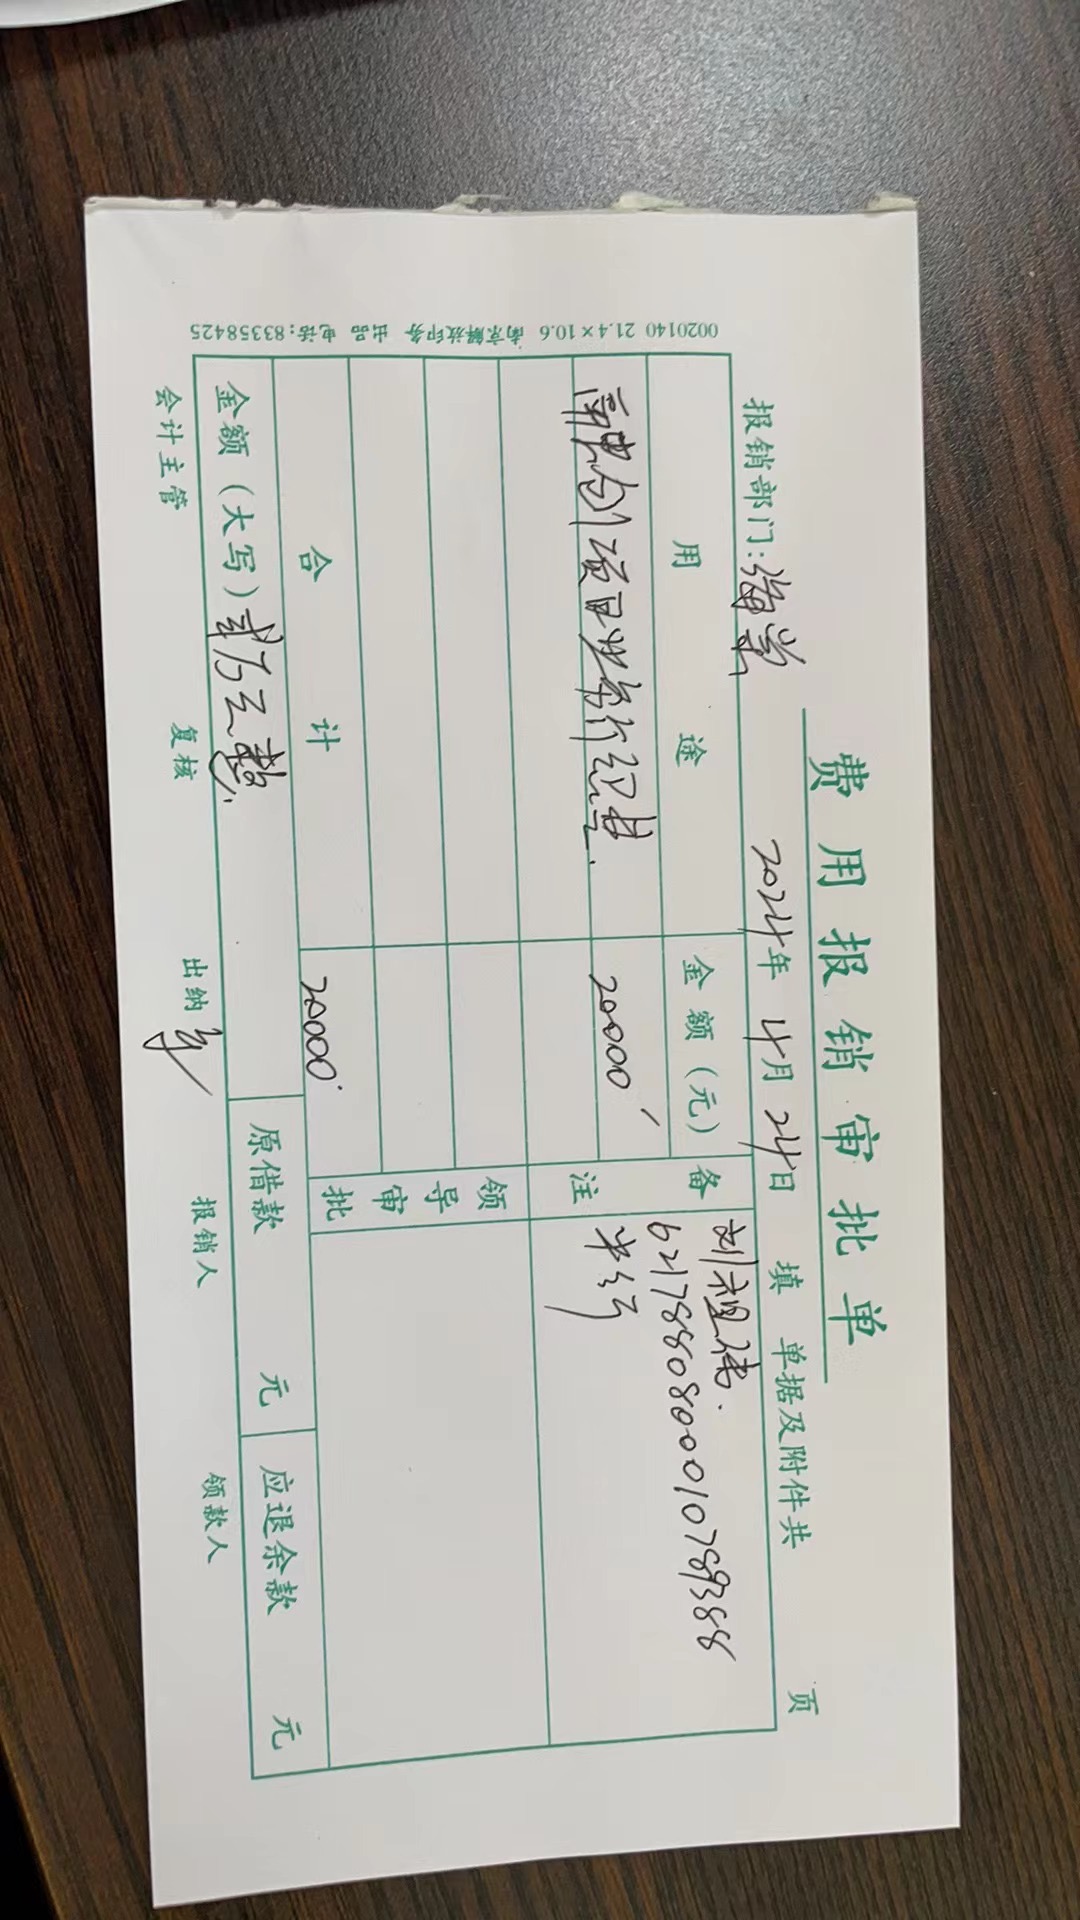 费用报销审批单
报销部门: 2024年 4月 24日 填 单据及附件共 页
用途 金额(元) 备注 刘祖伟.
项目业务经费. 20000
领导审批
合计 20000
金额(大写) 贰万元整. 原借款 元 应退余款 元
会计主管 复核 出纳 报销人 领款人
0020140 21.4×10.6 南京解放印务 出品 电话:83358425